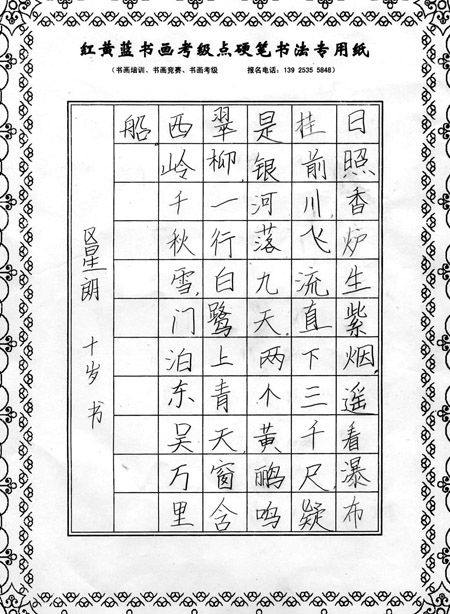 红黄蓝书画考级点硬笔书法专用纸
(书画培训、书画竞赛、书画考级 报名电话：139 2535 5848)
日照香炉生紫烟,遥看瀑布
桂前川,飞流直下三千尺,疑
是银河落九天.两个黄鹂鸣
翠柳,一行白鹭上青天.窗含
西岭千秋雪,门泊东吴万里
船.
区星朗 十岁 书